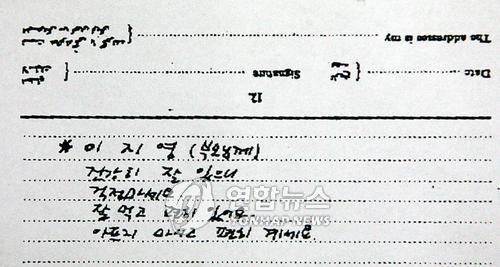 The addresses is my
Date
Signature
12
* 이 지 영 (부모님께)
건강히 잘 있으니
걱정마세요
잘 먹고 편히 있어요
아프지 마시고 편히 계세요
연합뉴스
YONHAP NEWS